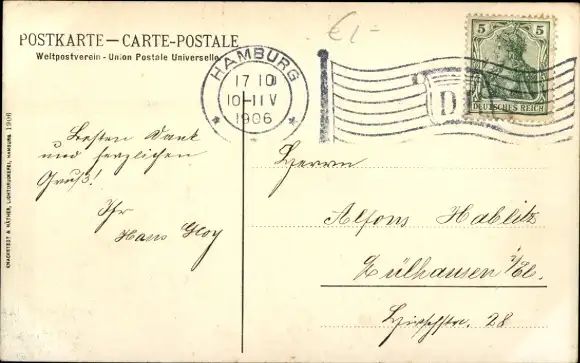 €1,-
POSTKARTE — CARTE-POSTALE
Weltpostverein - Union Postale Universelle
HAMBURG
17 10
10-11 V
1906
*
*
D
5
5
DEUTSCHES REICH
KNACKSTEDT & NÄTHER, LICHTDRUCKEREI, HAMBURG 1906
Besten Dank
und herzlichen
Gruß!
Ihr
Hans Gloy
Herrn
Alfons Hablitz
Mülhausen i/Els.
Hirschstr. 28